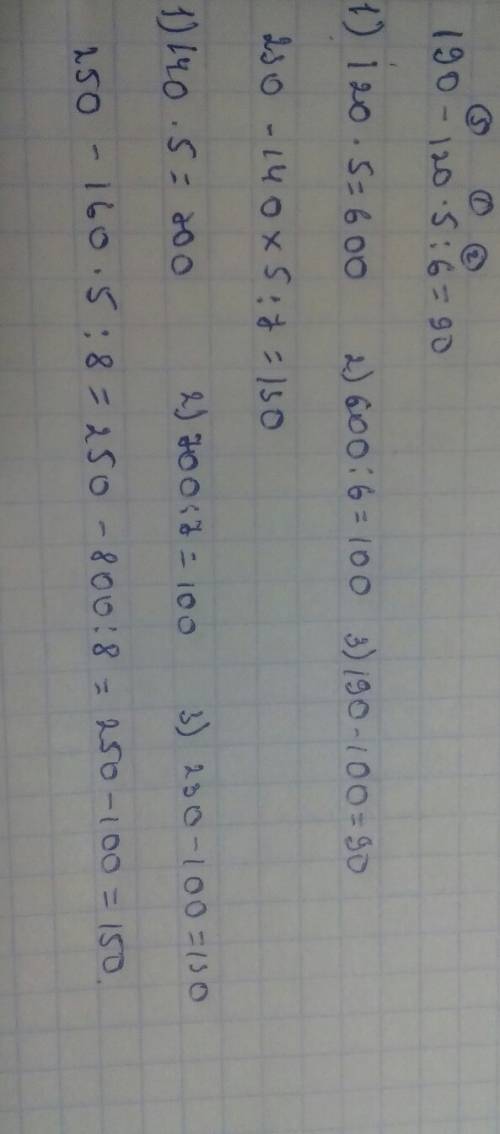 ③ ① ②
190 - 120 · 5 : 6 = 90
1) 120 · 5 = 600 2) 600 : 6 = 100 3) 190 - 100 = 90
230 - 140 × 5 : 7 = 130
1) 140 · 5 = 700 2) 700 : 7 = 100 3) 230 - 100 = 130
250 - 160 · 5 : 8 = 250 - 800 : 8 = 250 - 100 = 150.